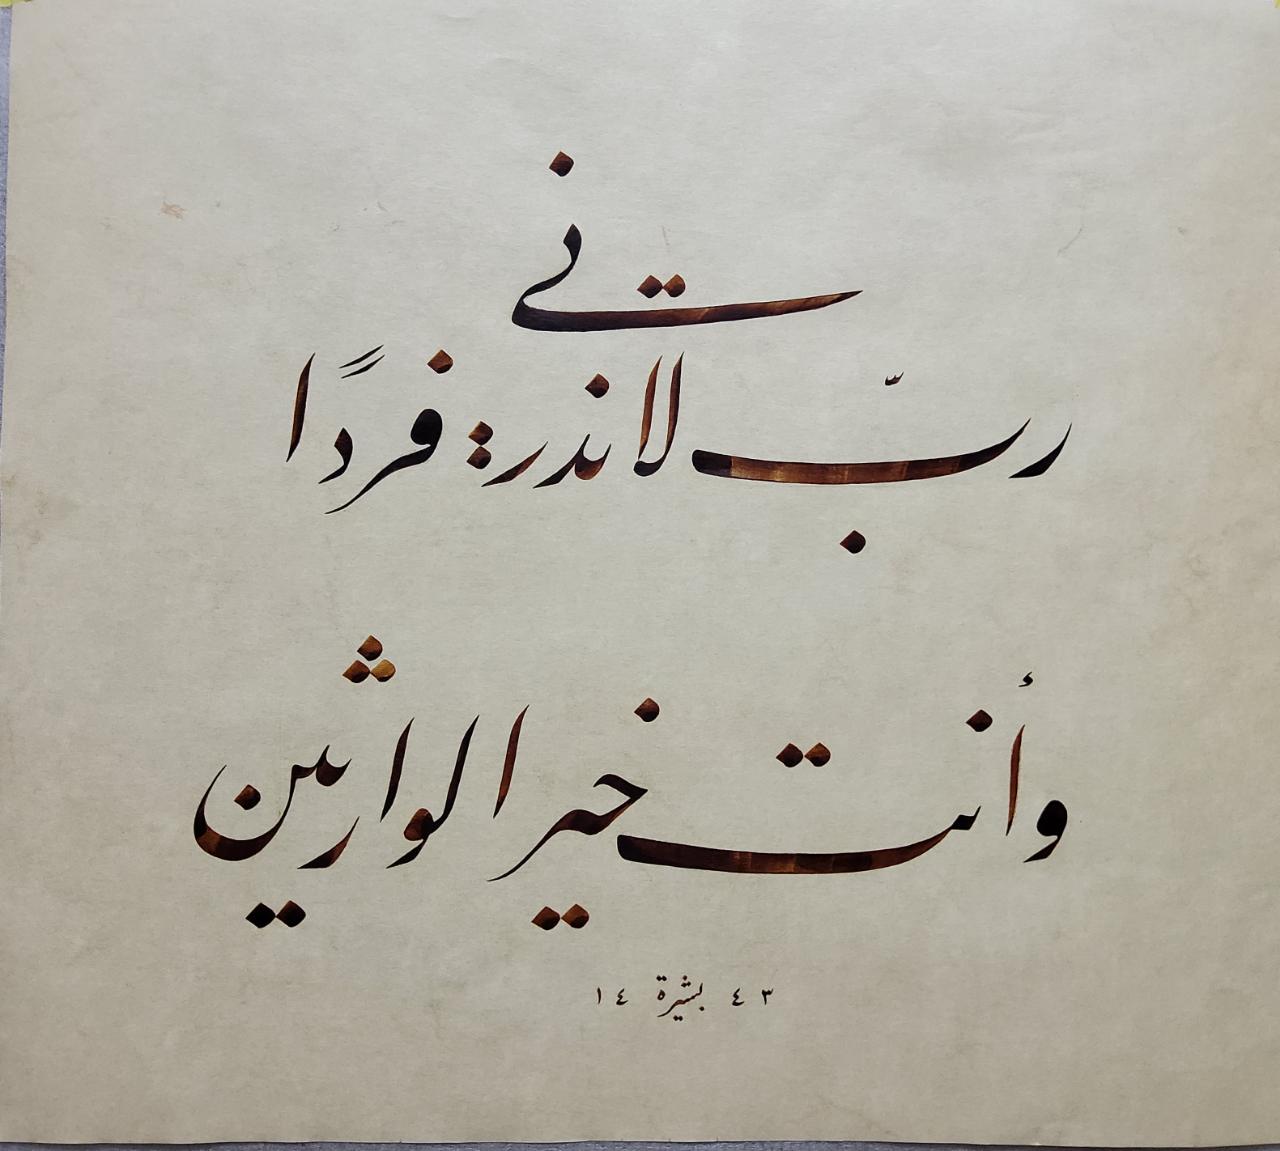 ربّ لا تذرني فردًا
وأنت خير الوارثين
٤٣ بشيرة ١٤